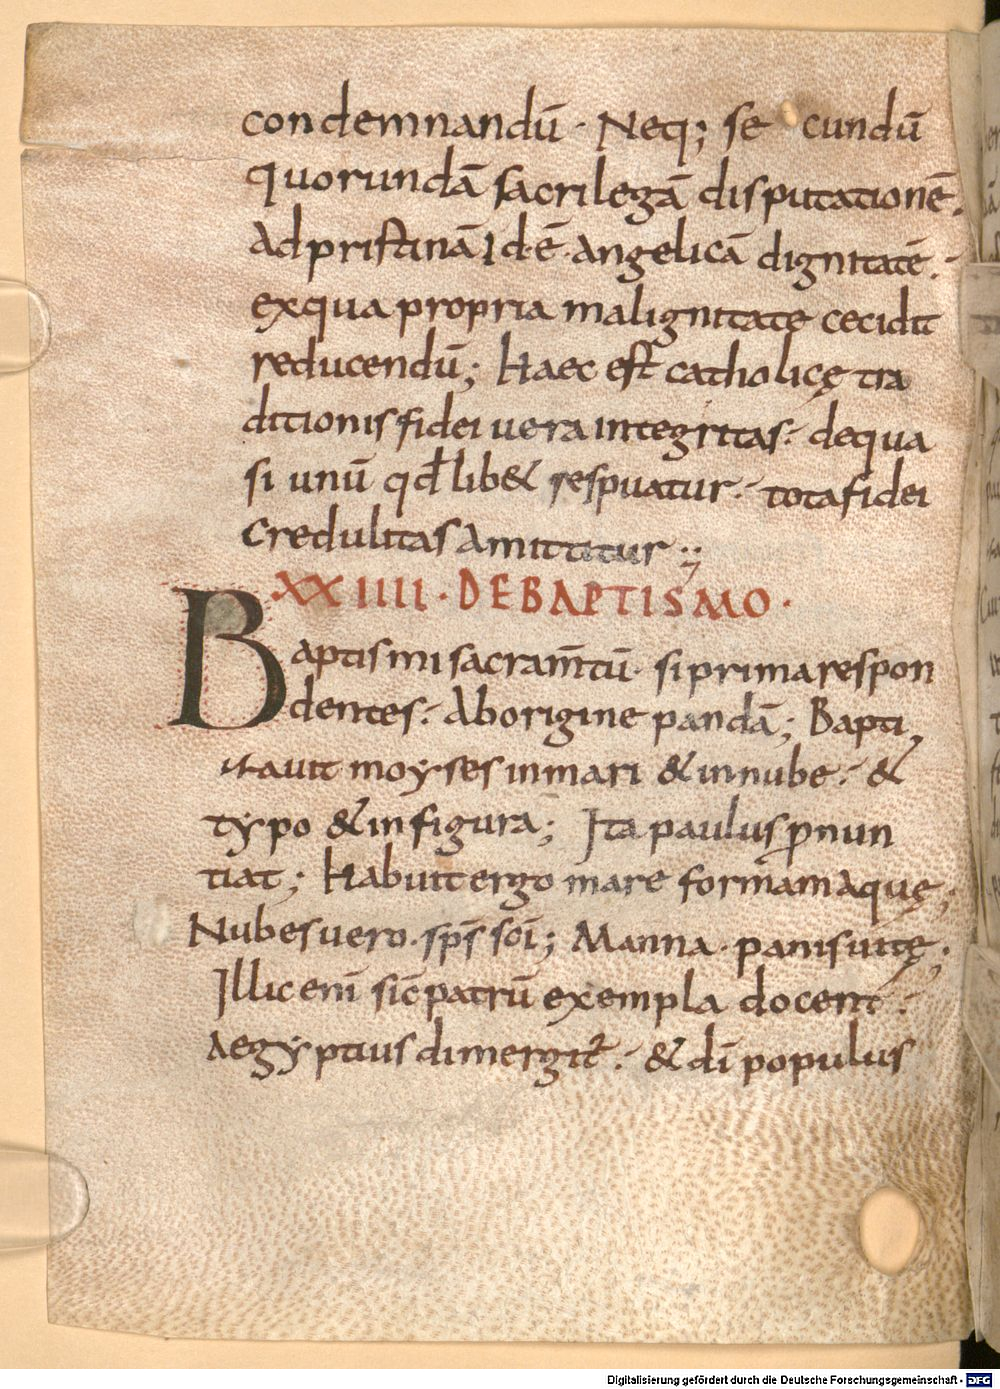 condemnandū · Neq; se cundū
quorundā sacrilegā disputationē ·
Adpristinā ɨd·ē· angelicā dignitatē ·
exqua propria malignitate cecidit
reducendū; Haec est catholicę tra
ditionisfidei vera integritas · dequa
si unū qđlib& respuatur · totafidei
credulitasamittitur ;
XXIIII · DEBAPTISMO ·
Baptismi sacram̄tū · siprimarespon
dentes · Aborigine pandā; Bapti
zauit moyses inmari & innube · &
typo & infigura; Ita paulus ꝓnun
tiat; Habuit ergo mare formamaquę;
Nubesuero · sps̄ sc̄i; Manna · panisuitę;
Illic enī sic̄ patrū exempla docent ·
Aegyptius dimergit᷑ · & dī populus
Digitalisierung gefördert durch die Deutsche Forschungsgemeinschaft - DFG